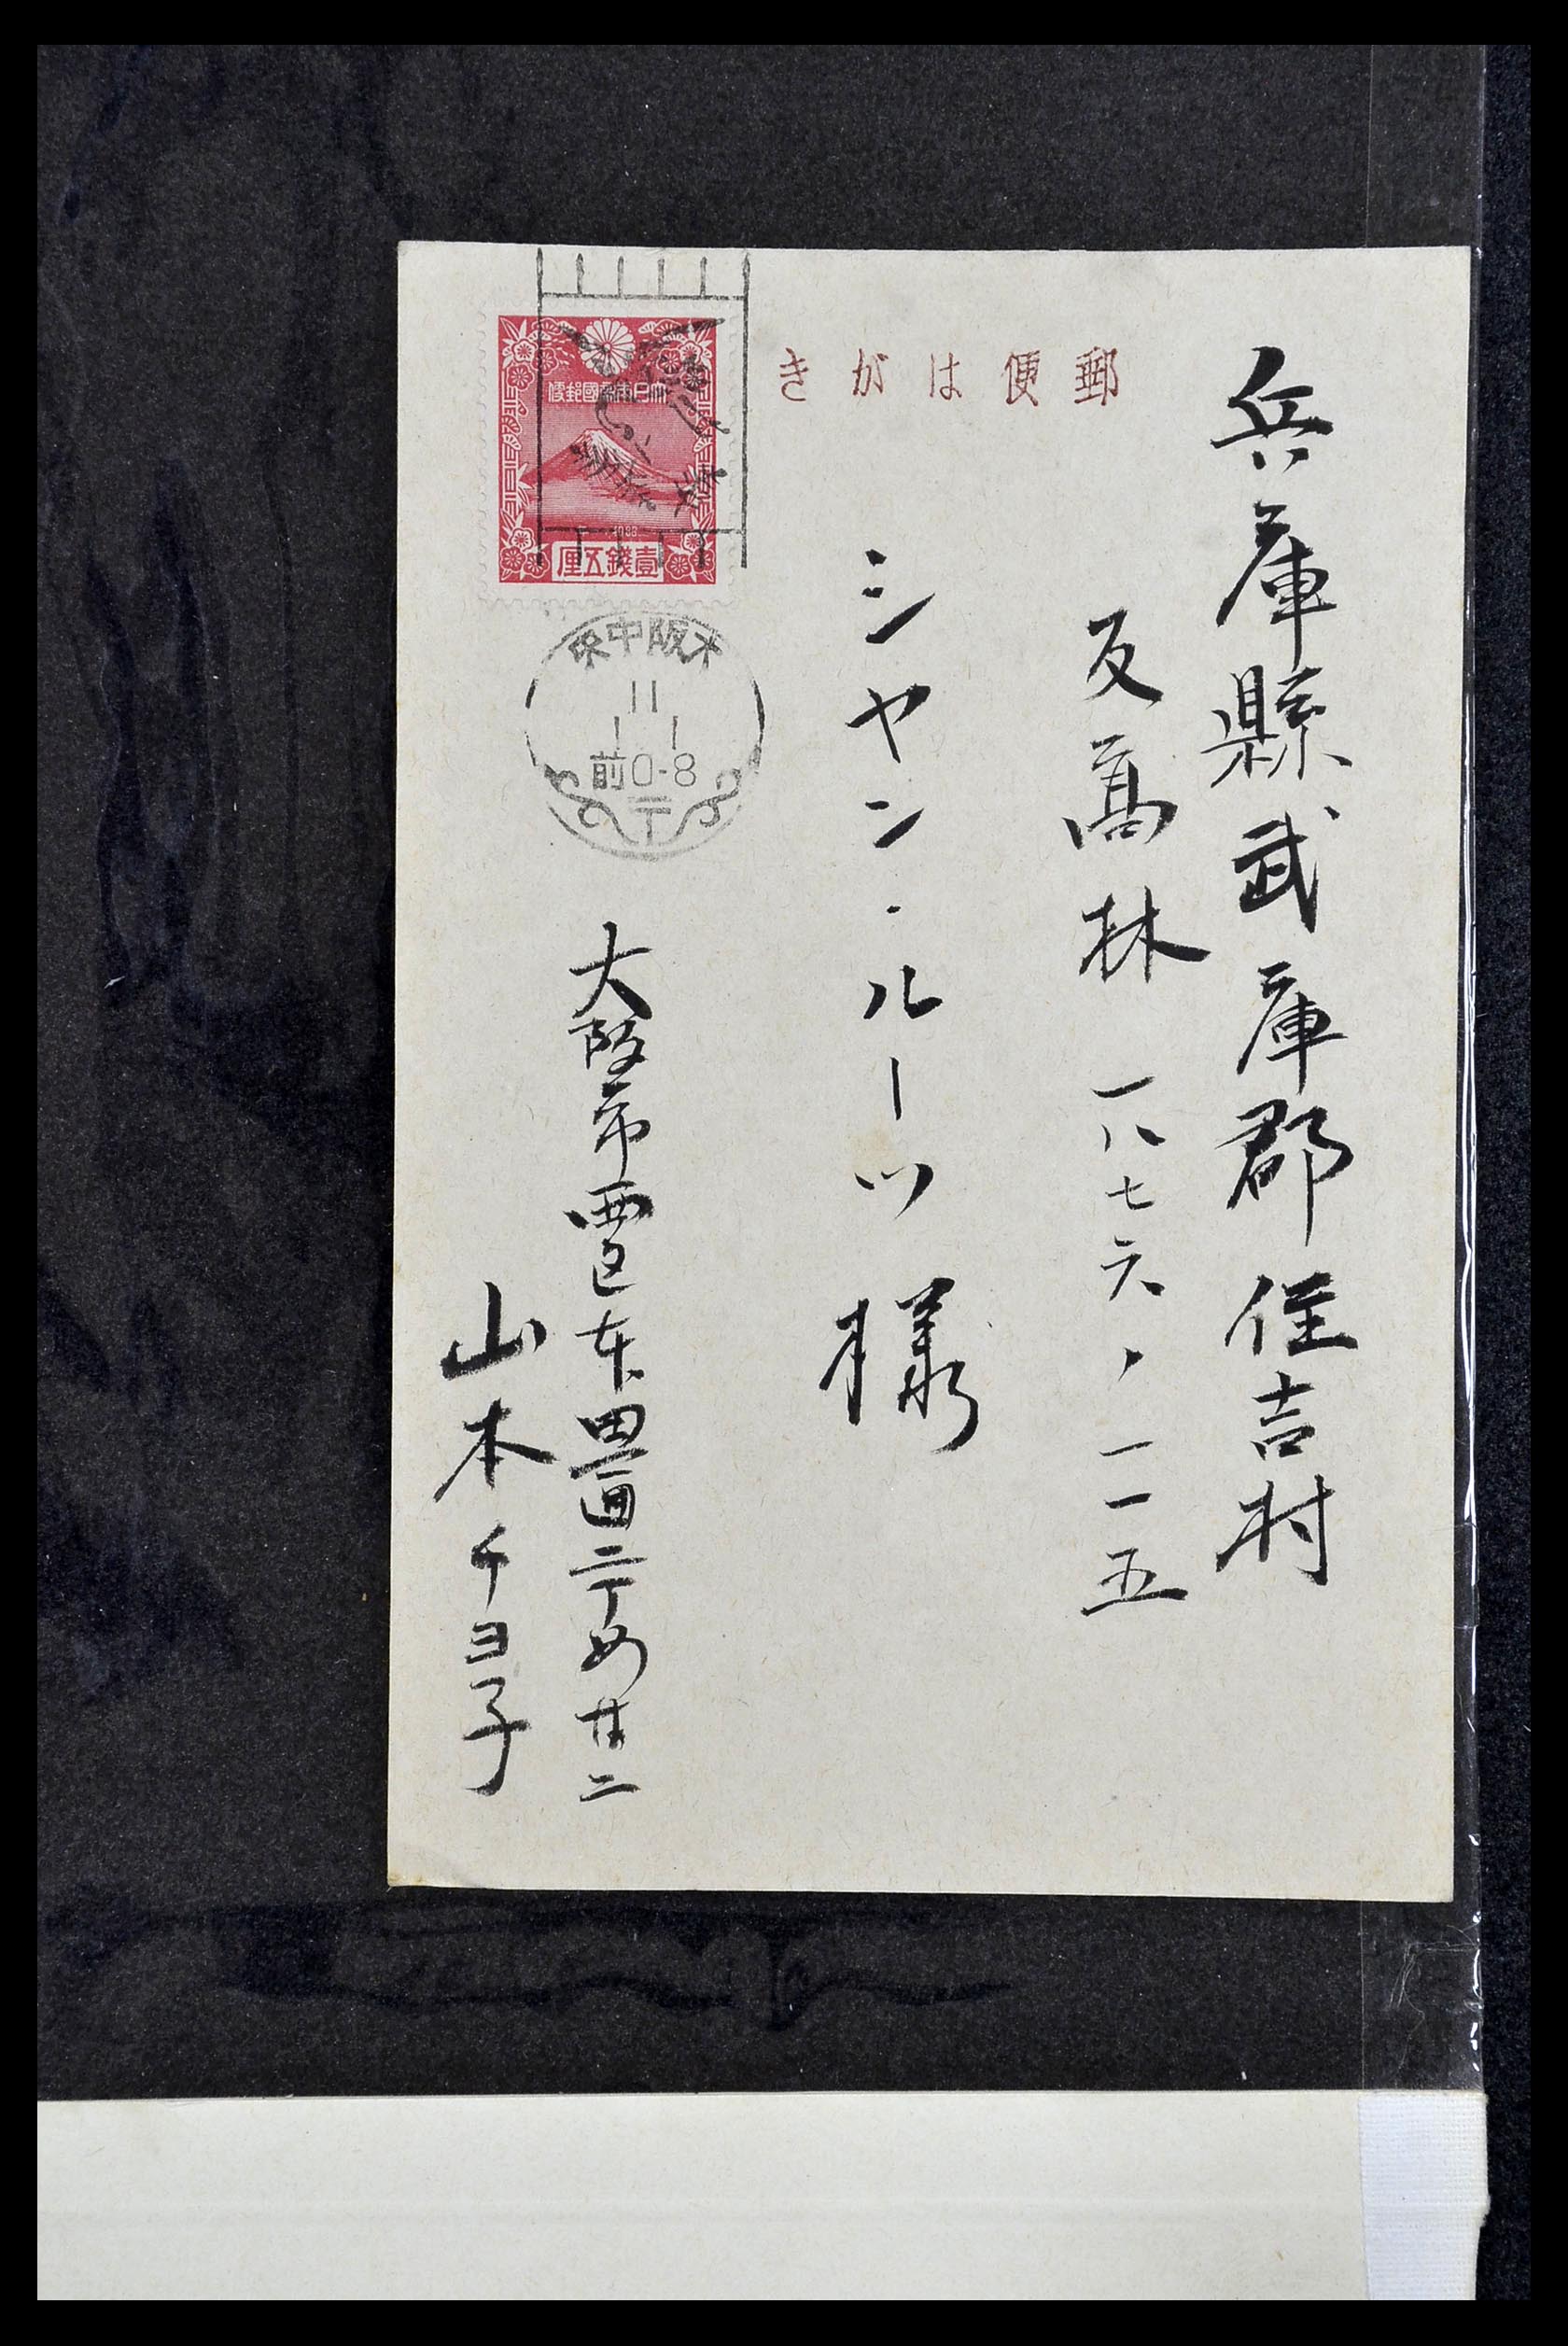 郵便はがき
兵庫縣武庫郡住吉村
反高林 一八七六ノ一一五
シヤン・ルーツ 様
大日本帝國郵便
1936
壹錢五厘
大阪中央
11
1 1
前0-8
〒
大阪市西区本田通二丁め廿二
山本チヨ子